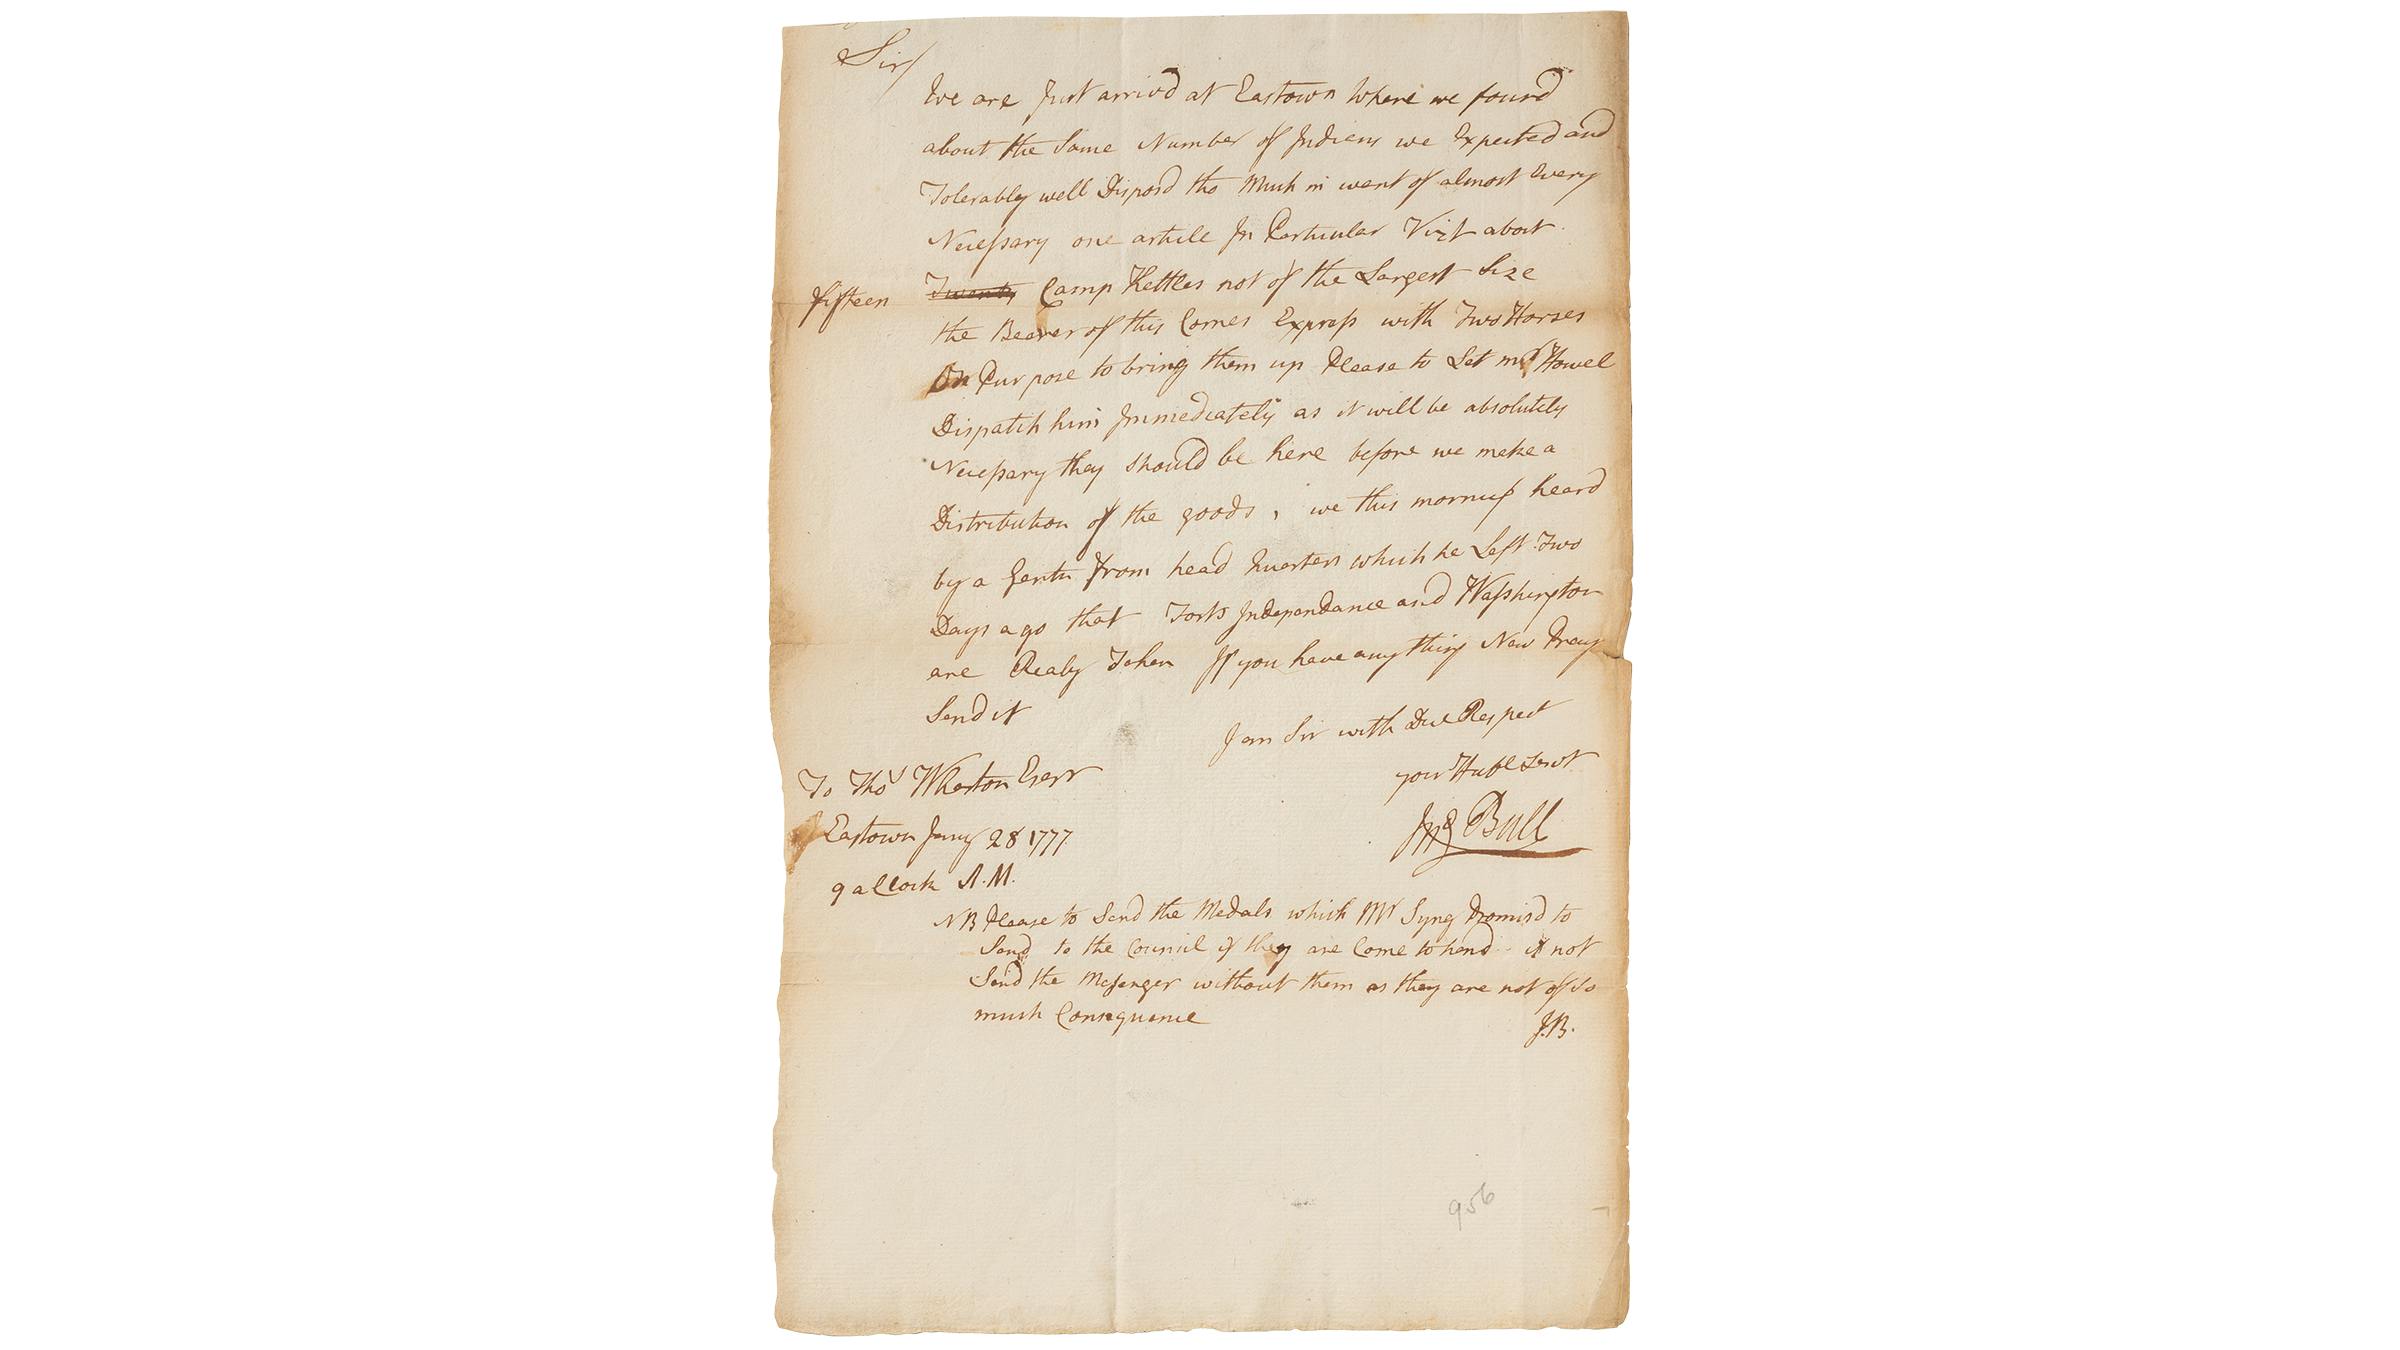 Sir/
We are Just arrivd at Eastown Where we found
about the Same Number of Indians we Expected and
Tolerably well Disposd tho Much in want of almost Every
Necessary one article In Particular Vizt about
fifteen Twenty Camp Kettles not of the Largest Size
the Bearer of this Comes Express with Two Horses
On Purpose to bring them up Please to Let mr Howel
Dispatch him Immediately as it will be absolutely
Necessary they Should be here before we make a
Distribution of the goods, we this morning heard
by a Gentn from head Quarters which he Left Two
Days ago that Forts Independance and Washington
are Realy Taken If you have any thing New Pray
Send it
I am Sir with Due Respect
your Huble Servt
To Thos Wharton Esqr
Jno Bull
Eastown Jany 28 1777
9 a Clock A.M.
NB Please to Send the Medals which Mr Syng Promisd to
Send to the Council if they are Come to hand if not
Send the Messenger without them as they are not of So
much Consequence
J.B.
956